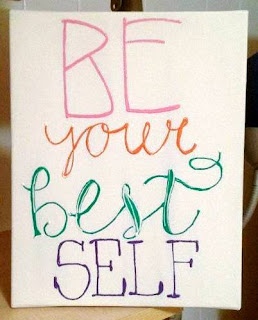 BE
your
best
SELF